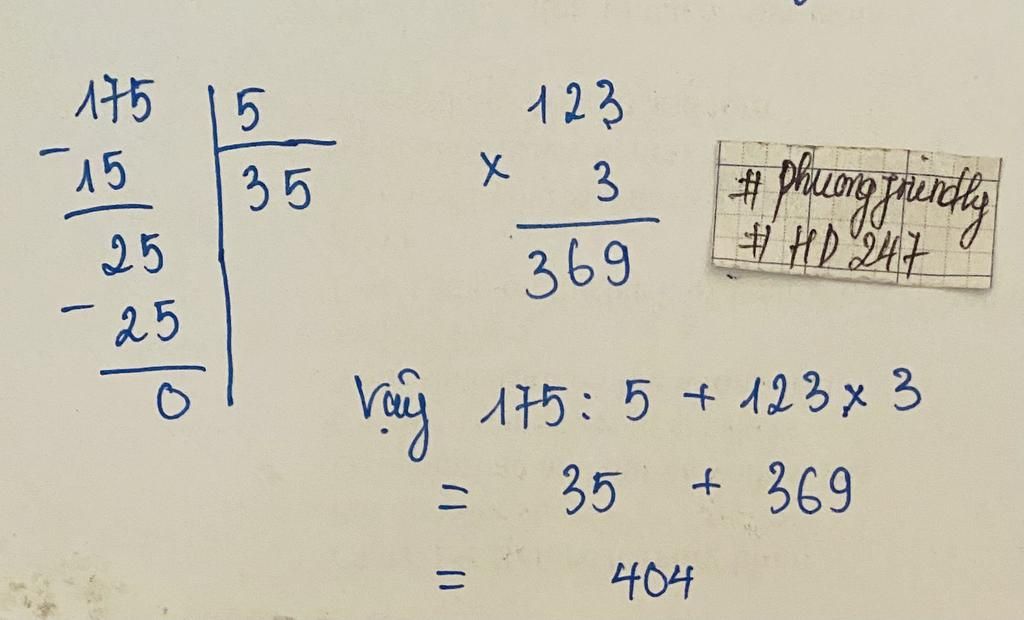 175 | 5
- 15 | 35
25
- 25
0
123
x 3
369
# phuongfriendly
# HD 247
Vậy 175 : 5 + 123 x 3
= 35 + 369
= 404